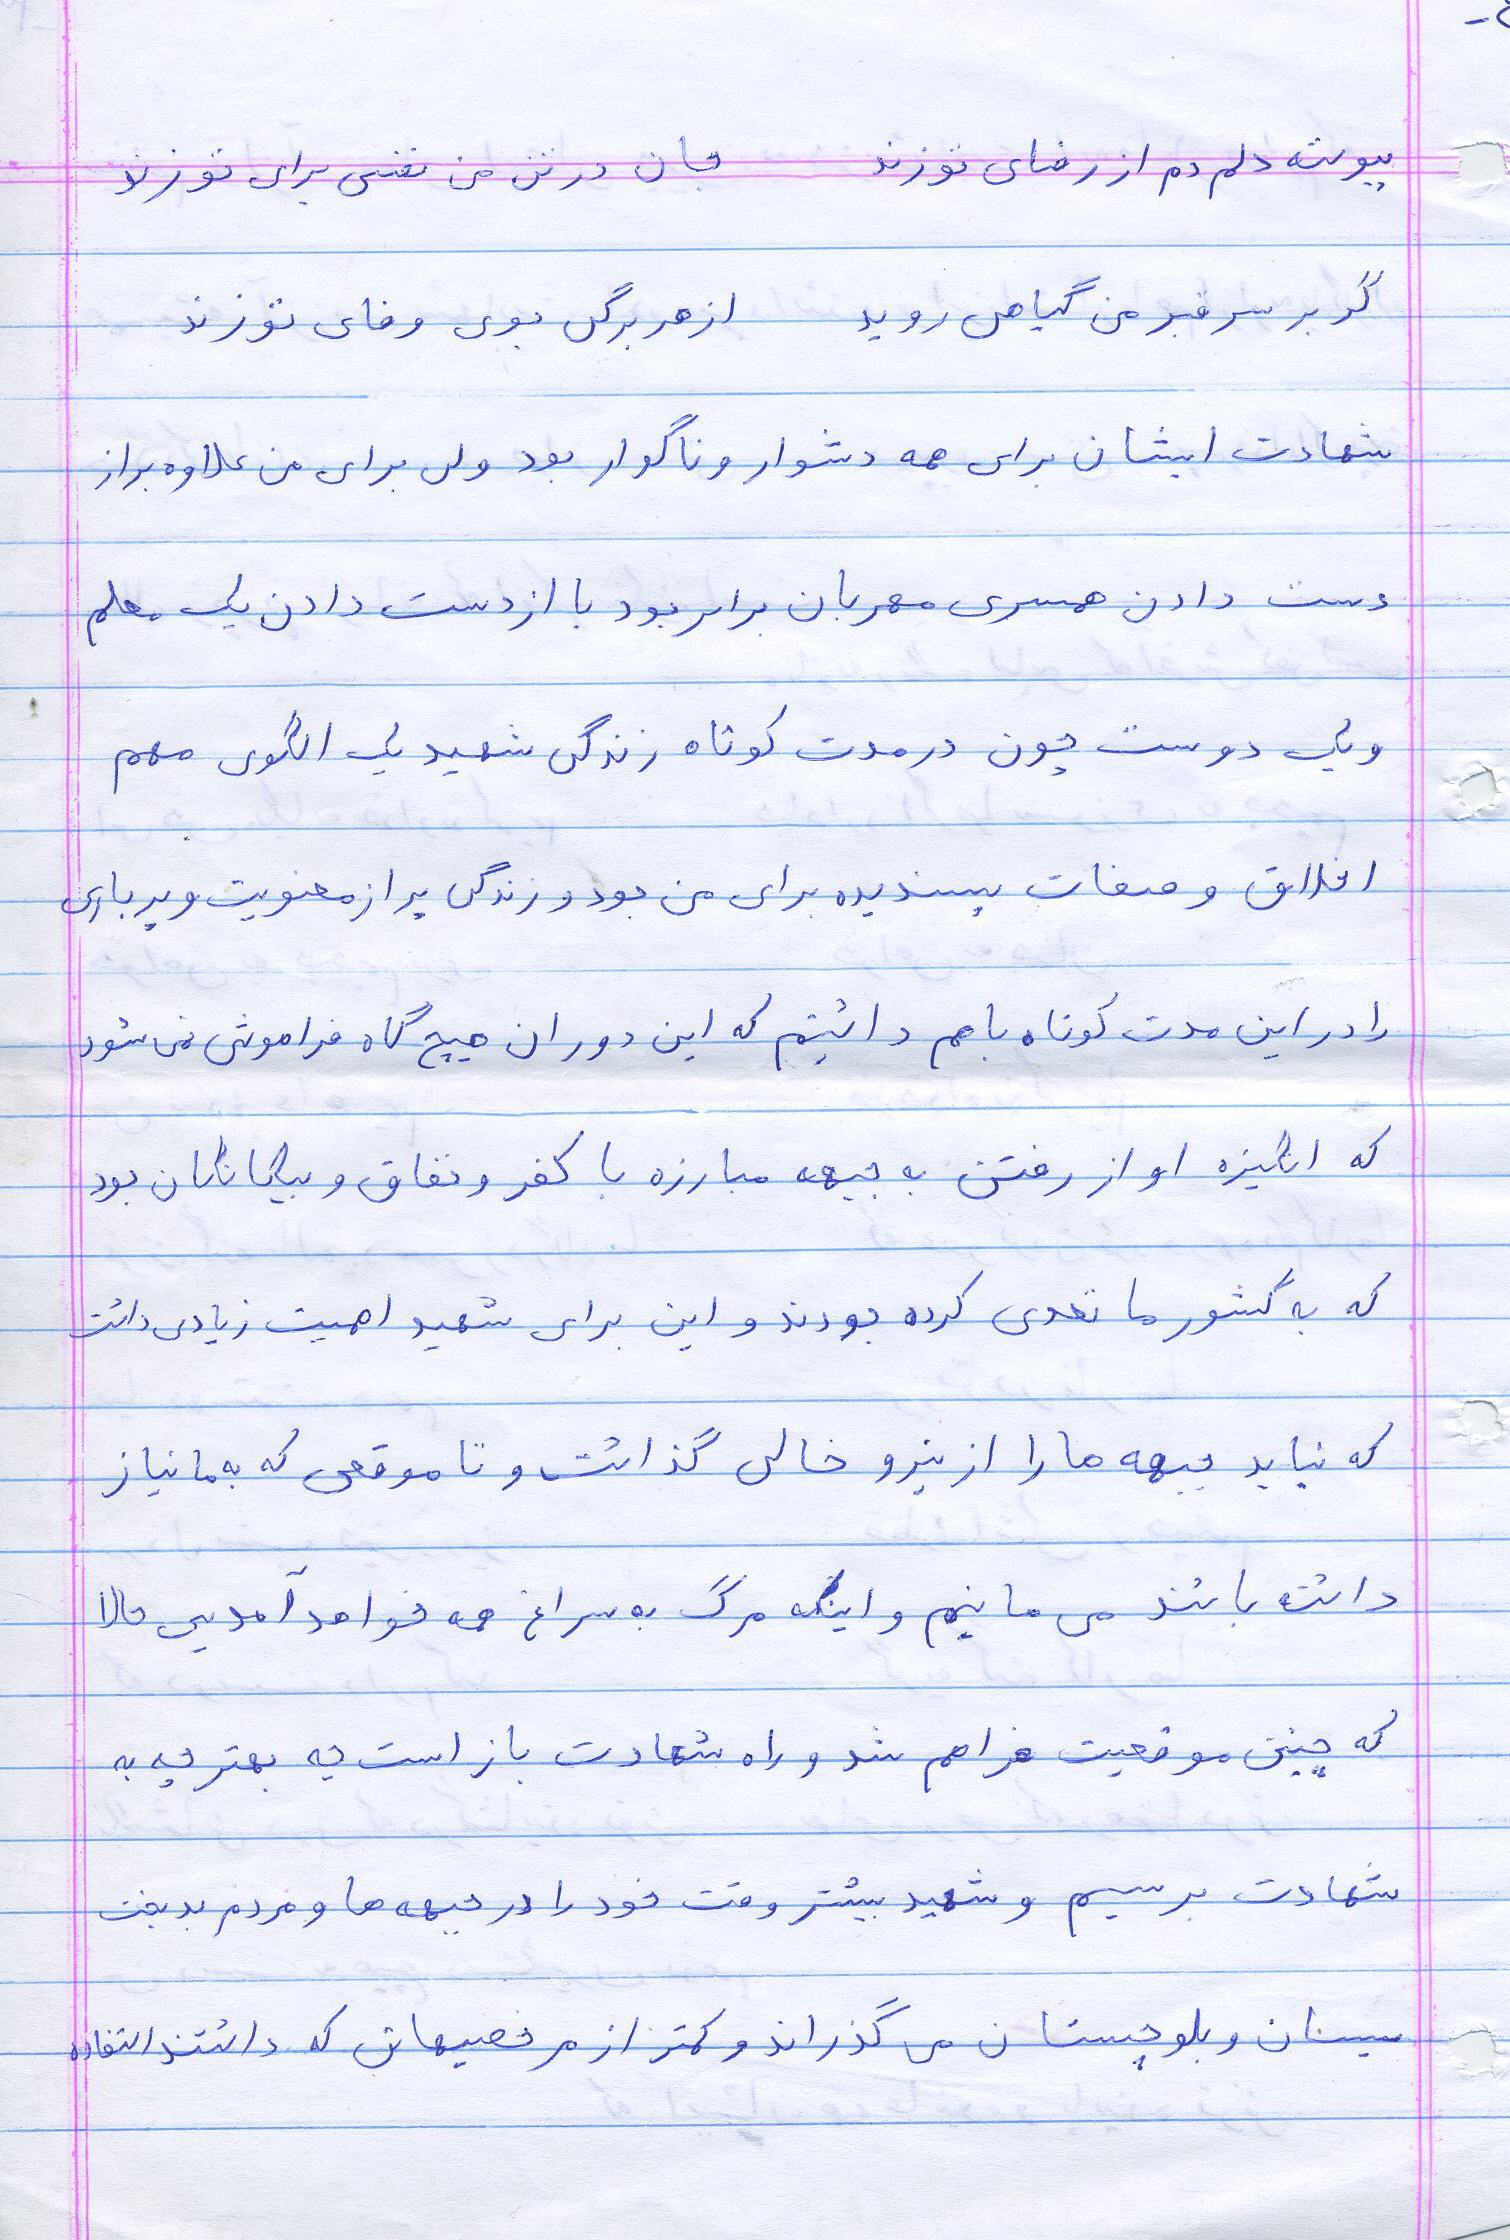 پیوسته دلم دم از رضای تو زند جان در تن من نفسی برای تو زند
گر بر سر قبر من گیاهی روید از هر برگی بوی وفای تو زند
شهادت ایشان برای همه دشوار و ناگوار بود ولی برای من علاوه بر از
دست دادن همسری مهربان برابر بود با از دست دادن یک معلم
و یک دوست چون در مدت کوتاه زندگی شهید یک الگوی مهم
اخلاق و صفات پسندیده برای من بود و زندگی پر از معنویت و پرباری
را در این مدت کوتاه با هم داشتیم که این دوران هیچ گاه فراموش نمی شود
که انگیزه او از رفتن به جبهه مبارزه با کفر و نفاق و بیگانگان بود
که به کشور ما تعدی کرده بودند و این برای شهید اهمیت زیادی داشت
که نباید جبهه ما را از نیرو خالی گذاشت و تا موقعی که به ما نیاز
داشته باشند می مانیم و اینکه مرگ به سراغ همه خواهد آمد پس حالا
که چنین موقعیت فراهم شد و راه شهادت باز است چه بهتر چه به
شهادت برسیم و شهید بیشتر وقت خود را در جبهه ها و مردم بدبخت
سیستان و بلوچستان می گذراند و کمتر از مرخصیهاش که داشتند استفاده